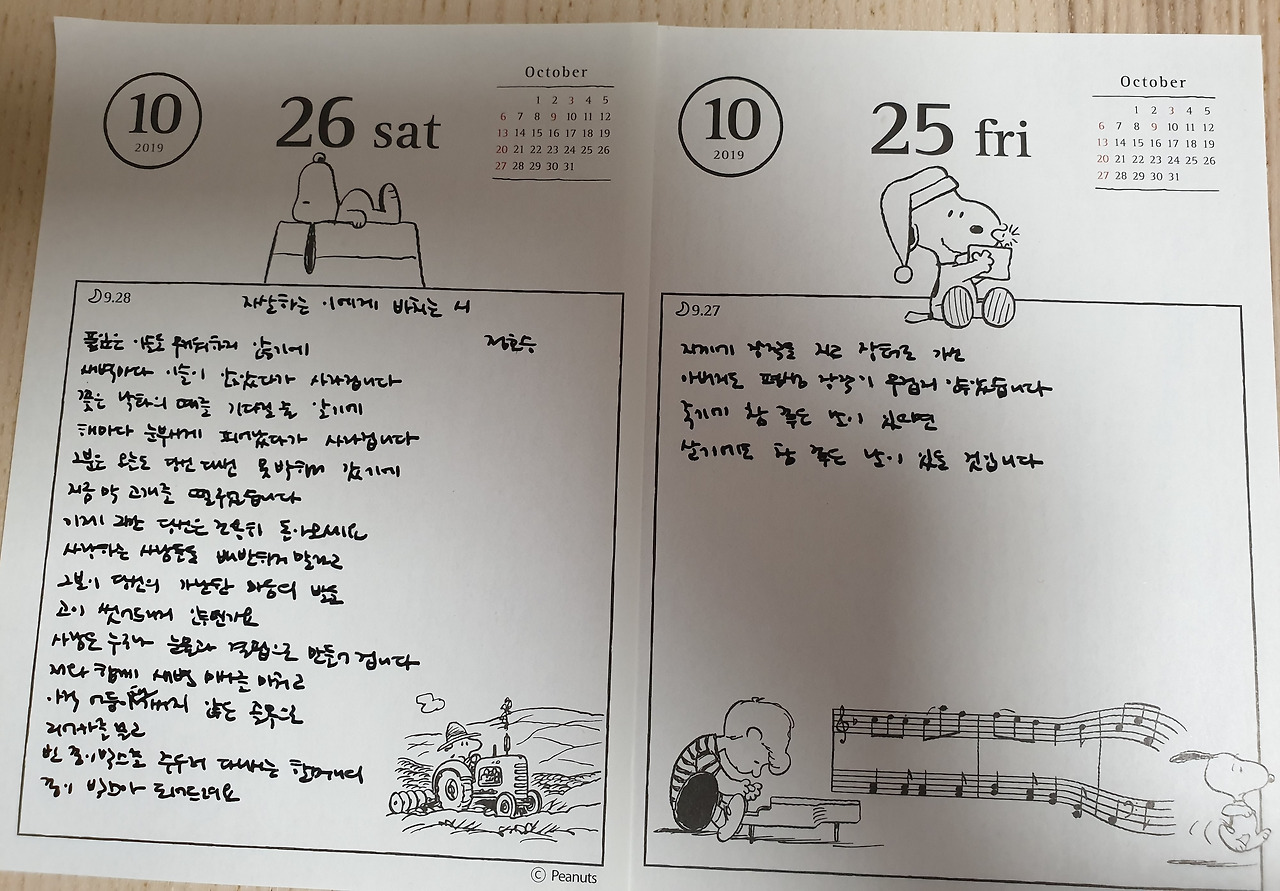 10
2019
26 sat
October
1 2 3 4 5
6 7 8 9 10 11 12
13 14 15 16 17 18 19
20 21 22 23 24 25 26
27 28 29 30 31
9.28
자살하는 이에게 바치는 시
정호승
풀잎은 이슬을 무거워하지 않기에
새벽마다 이슬이 앉았다가 사라집니다
꽃은 낙화의 때를 기다릴 줄 알기에
해마다 눈부시게 피어났다가 사라집니다
그분은 오늘도 당신 대신 못 박혀 있기에
지금 막 고개를 떨구었습니다
이제 그만 당신은 조용히 돌아오세요
사랑하는 사람들을 배반하지 말고
그분이 당신의 가난한 마음의 발을
고이 씻어드리지 않던가요
사랑은 누구나 눈물과 결핍으로 만들어집니다
저와 함께 새벽 미사를 마치고
아직 어둠이 가시지 않은 골목으로
리어카를 끌고
빈 종이박스를 주우러 다니는 할머니의
종이 박스가 되어드려요
© Peanuts
10
2019
25 fri
October
1 2 3 4 5
6 7 8 9 10 11 12
13 14 15 16 17 18 19
20 21 22 23 24 25 26
27 28 29 30 31
9.27
지게에 장작을 지고 장터로 가신
아버지도 평생 장작이 무겁지 않았습니다
죽기에 참 좋은 날이 있으면
살기에도 참 좋은 날이 있을 것입니다